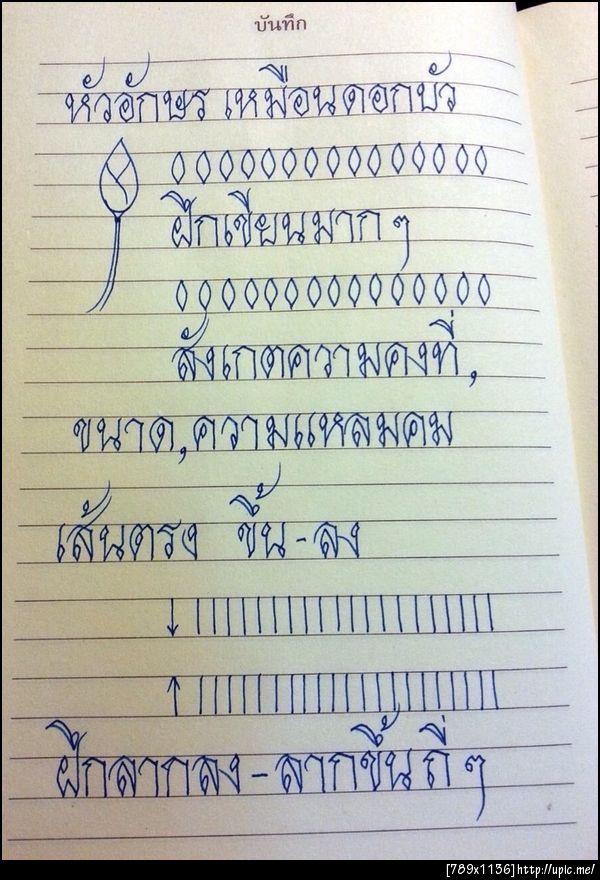 บันทึก
หัวอักษร เหมือนดอกบัว
ฝึกเขียนมาก ๆ
สังเกตความคงที่,
ขนาด, ความแหลมคม
เส้นตรง ขึ้น - ลง
ฝึกลากลง - ลากขึ้น ถี่ ๆ
[789x1136]http://upic.me/